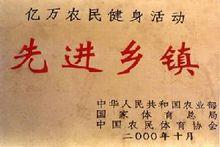 亿万农民健身活动
先进乡镇
中华人民共和国农业部
国家体育总局
中国农民体育协会
二000年十月